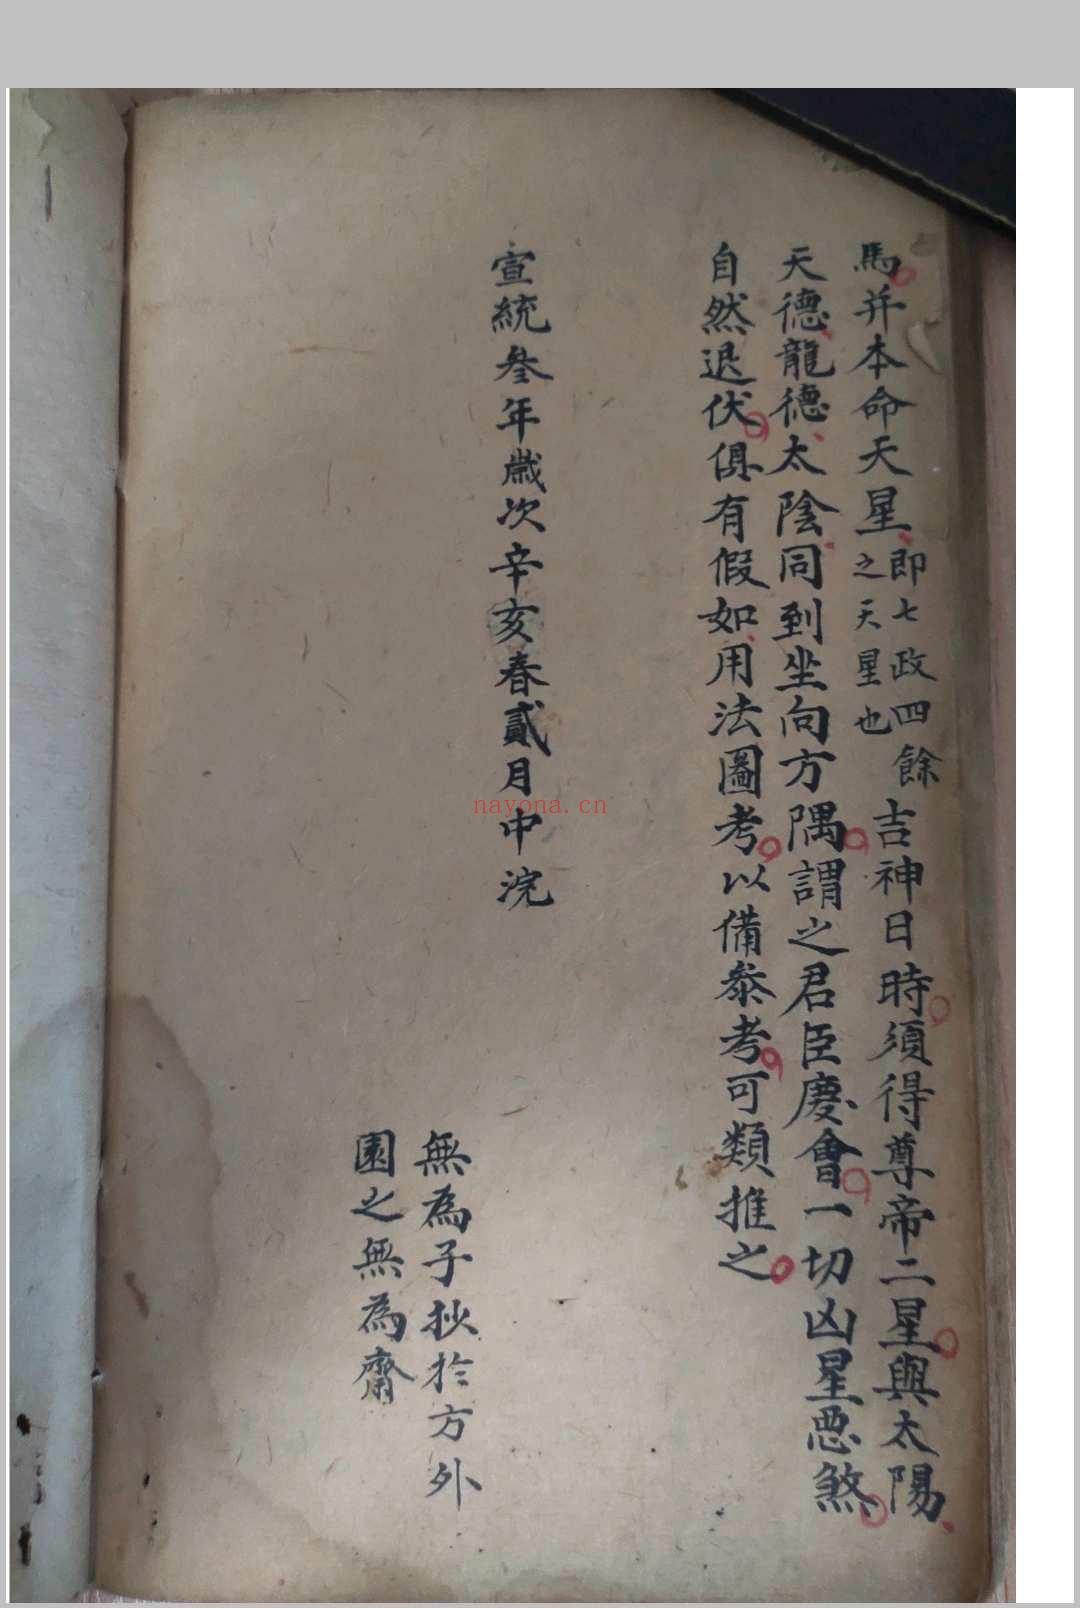 馬并本命天星即七政四餘之天星也吉神日時須得尊帝二星與太陽
天德龍德太陰同到坐向方隅謂之君臣慶會一切凶星恶煞
自然退伏俱有假如用法圖考以備叅考可類推之
宣統叁年歲次辛亥春貳月中浣
無為子抄於方外
園之無為齋
nayona.cn